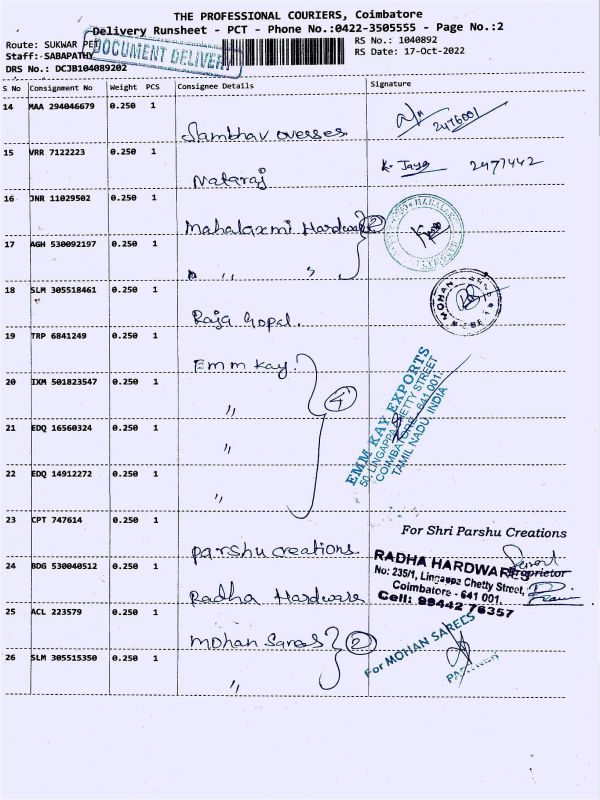 THE PROFESSIONAL COURIERS, Coimbatore
Delivery Runsheet - PCT - Phone No.:0422-3505555 - Page No.:2
Route: SUKWAR PET
RS No.: 1040892
Staff: SABAPATHY
RS Date: 17-Oct-2022
DRS No.: DCJB104089202
DOCUMENT DELIVERY
S No Consignment No Weight PCS Consignee Details Signature
14 MAA 294046679 0.250 1
Sambhav overses 2476001
15 VRR 7122223 0.250 1
Nataraj K. Jaya 2477442
16 JNR 11029502 0.250 1
Mahalaxmi Hardware 2
17 AGH 530092197 0.250 1
" "
18 SLM 305518461 0.250 1
Raja Gopal. MOHAN
19 TRP 6841249 0.250 1
Emm Kay.
20 IXM 501823547 0.250 1
" 4
21 EDQ 16560324 0.250 1
"
22 EDQ 14912272 0.250 1
"
EMM KAY EXPORTS
50, LINGAPPA CHETTY STREET
COIMBATORE - 641 001.
TAMIL NADU INDIA
23 CPT 747614 0.250 1
parshu creations
For Shri Parshu Creations
Proprietor
24 BDG 530040512 0.250 1
Radha Hardware
RADHA HARDWARES
No: 235/1, Lingappa Chetty Street,
Coimbatore - 641 001.
Cell: 99442 76357
25 ACL 223579 0.250 1
mohan Sarees 2
26 SLM 305515350 0.250 1
"
For MOHAN SAREES
PARTNER